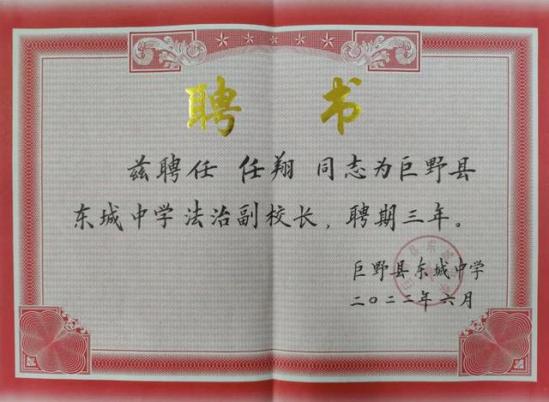 聘 书
兹聘任 任翔 同志为巨野县
东城中学法治副校长，聘期三年。
巨野县东城中学
二〇二二年六月